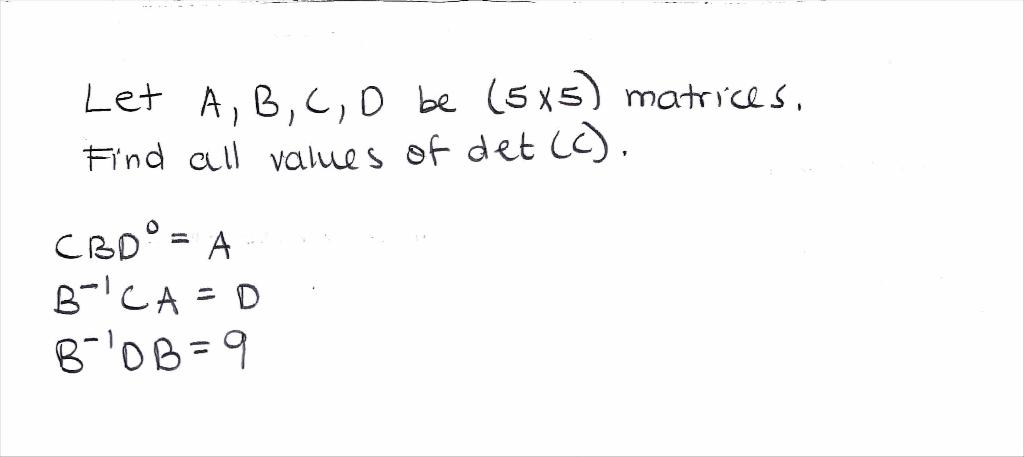 Let A, B, C, D be (5x5) matrices.
Find all values of det (C).
CBD⁰ = A
B⁻¹CA = D
B⁻¹DB = 9